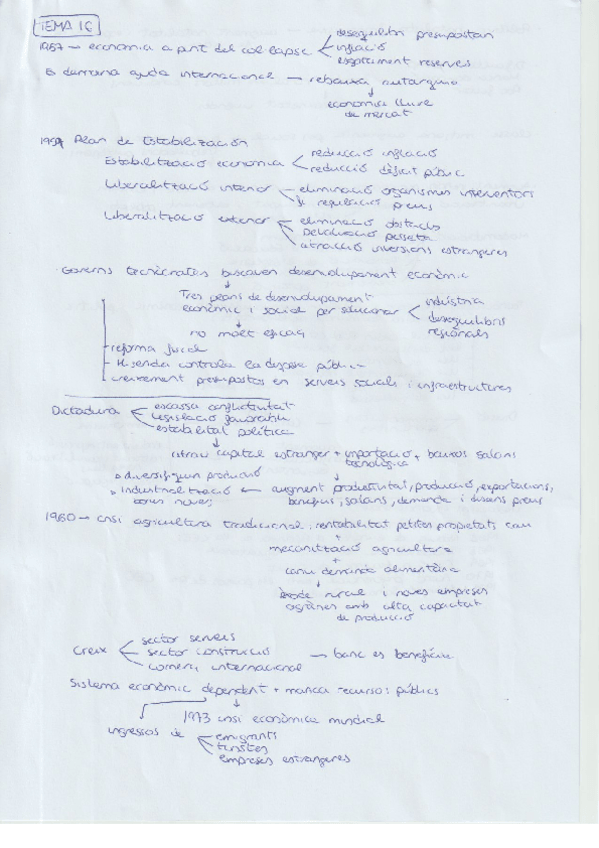 TEMA 16
desequilibri pressupostari
1957 → economia a punt del col·lapse inflació
esgotament reserves
Es demana ajuda internacional → rebaixa autarquia
economia lliure
de mercat
1959 Plan de Estabilización
Estabilització economia reducció inflació
reducció dèficit públic
Liberalització interior eliminació organismes interventors
regulacions preus
Liberalització exterior eliminació obstacles
Devaluació pesseta
atracció inversions estrangeres
Governs tecnòcrates buscaven desenvolupament econòmic
Tres plans de desenvolupament
econòmic i social per solucionar indústria
desequilibris
regionals
no molt eficaç
reforma fiscal
Hisenda controla la despesa pública
creixement pressupostos en serveis socials i infraestructures
Dictadura escassa conflictivitat
legislació favorable
estabilitat política
atrau capital estranger + importació + baixos salaris
tecnològica
diversifiquen producció
industrialització ← augment productivitat, producció, exportacions,
bones noves; beneficis, salaris, demanda i preus
1960 → crisi agricultura tradicional: rentabilitat petites propietats cau
+
mecanització agricultura
+
canvi demanda alimentària
Èxode rural i noves empreses
agràries amb alta capacitat
de producció
Creix sector serveis
sector construcció → banc es beneficia
comerç internacional
Sistema econòmic dependent + manca recursos públics
1973 crisi econòmica mundial
ingressos de emigrants
turistes
empreses estrangeres